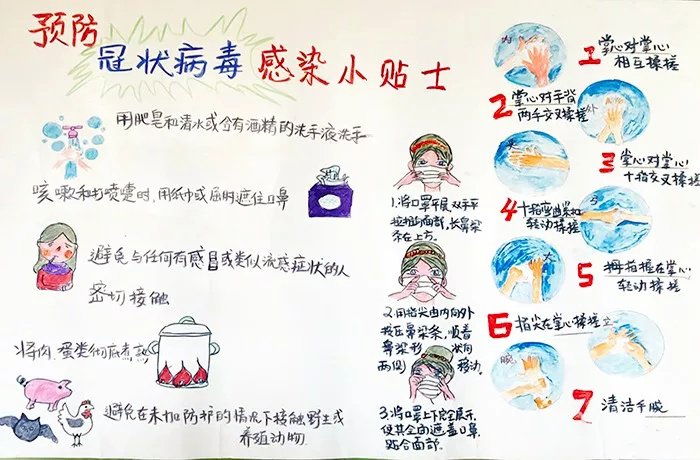 预防
冠状病毒感染小贴士
用肥皂和清水或含有酒精的洗手液洗手
咳嗽和打喷嚏时,用纸巾或屈肘遮住口鼻
避免与任何有感冒或类似流感症状的人
密切接触
将肉、蛋类彻底煮熟
避免在未加防护的情况下接触野生或
养殖动物
1.将口罩平展,双手平
拉推向面部,长鼻梁
条在上方。
2.用指尖由内向外
按压鼻梁条,顺着
鼻梁形状向
两侧移动。
3.将口罩上下完全展开,
使其全面遮盖口鼻,
贴合面部。
内
1 掌心对掌心
相互揉搓
2 掌心对手背
两手交叉揉搓
外
夹
3 掌心对掌心
十指交叉揉搓
4 十指弯曲紧扣
转动揉搓
弓
大
5 拇指握在掌心
转动揉搓
6 指尖在掌心揉搓
立
腕
7 清洁手腕